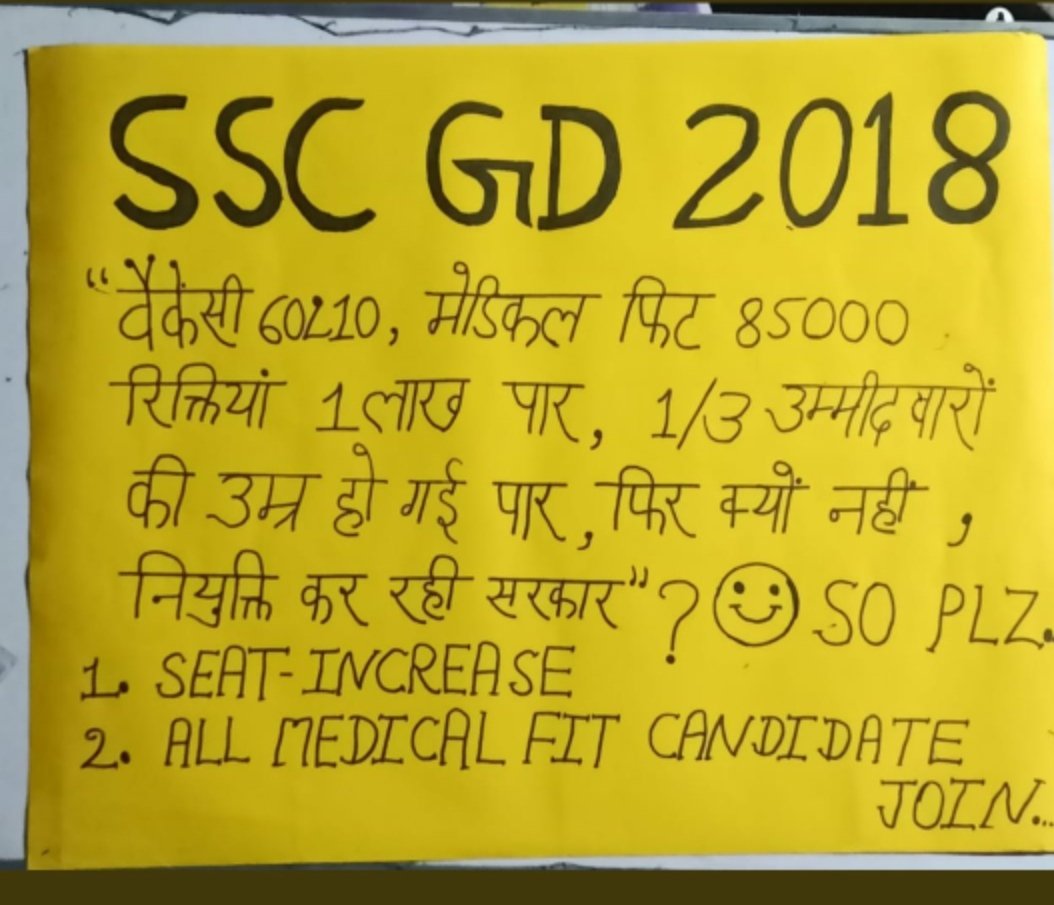 SSC GD 2018
"वैकेंसी 60210, मेडिकल फिट 85000
रिक्तियां 1लाख पार, 1/3 उम्मीदवारों
की उम्र हो गई पार, फिर क्यों नहीं,
नियुक्ति कर रही सरकार"? SO PLZ.
1. SEAT-INCREASE
2. ALL MEDICAL FIT CANDIDATE
JOIN...